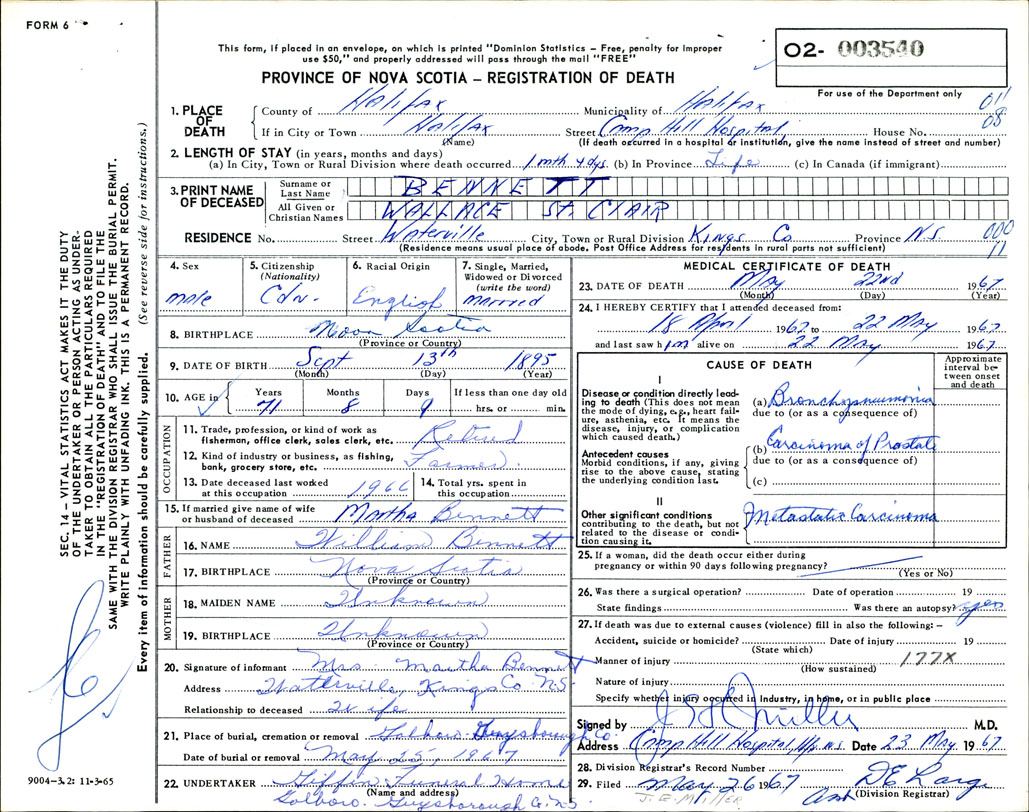 FORM 6
This form, if placed in an envelope, on which is printed "Dominion Statistics – Free, penalty for improper
use $50," and properly addressed will pass through the mail "FREE"
PROVINCE OF NOVA SCOTIA – REGISTRATION OF DEATH
O2- 003540
For use of the Department only
011
08
SEC. 14 – VITAL STATISTICS ACT MAKES IT THE DUTY
OF THE UNDERTAKER OR PERSON ACTING AS UNDER-
TAKER TO OBTAIN ALL THE PARTICULARS REQUIRED
IN THE "REGISTRATION OF DEATH" AND TO FILE THE
SAME WITH THE DIVISION REGISTRAR WHO SHALL ISSUE THE BURIAL PERMIT.
WRITE PLAINLY WITH UNFADING INK. THIS IS A PERMANENT RECORD.
Every item of information should be carefully supplied. (See reverse side for instructions.)
1. PLACE OF DEATH
County of Halifax Municipality of Halifax
If in City or Town Halifax Street Camp Hill Hospital, House No.
(Name) (If death occurred in a hospital or institution, give the name instead of street and number)
2. LENGTH OF STAY (in years, months and days)
(a) In City, Town or Rural Division where death occurred 1 mth 4 dys. (b) In Province Life (c) In Canada (if immigrant)
3. PRINT NAME OF DECEASED
Surname or Last Name BENNETT
All Given or Christian Names WALLACE St. CLAIR
RESIDENCE No. Street Waterville City, Town or Rural Division Kings Co Province N.S. 000
(Residence means usual place of abode. Post Office Address for residents in rural parts not sufficient) 11
4. Sex male
5. Citizenship (Nationality) Cdn.
6. Racial Origin English
7. Single, Married, Widowed or Divorced (write the word) married
8. BIRTHPLACE Nova Scotia
(Province or Country)
9. DATE OF BIRTH Sept 13th 1895
(Month) (Day) (Year)
10. AGE in Years 71 Months 8 Days 9 If less than one day old hrs. or min.
OCCUPATION
11. Trade, profession, or kind of work as fisherman, office clerk, sales clerk, etc. Retired
12. Kind of industry or business, as fishing, bank, grocery store, etc. Farmer.
13. Date deceased last worked at this occupation 1966
14. Total yrs. spent in this occupation
15. If married give name of wife or husband of deceased Martha Bennett
FATHER
16. NAME William Bennett
17. BIRTHPLACE Nova Scotia
(Province or Country)
MOTHER
18. MAIDEN NAME Unknown
19. BIRTHPLACE Unknown
(Province or Country)
20. Signature of informant Mrs. Martha Bennett
Address Waterville, Kings Co N.S.
Relationship to deceased Wife
21. Place of burial, cremation or removal Goldboro Guysborough Co.
Date of burial or removal May 25, 1967
22. UNDERTAKER Giffin Funeral Home
(Name and address)
Goldboro. Guysborough Co. N.S.
9004–3.2: 11-3-65
MEDICAL CERTIFICATE OF DEATH
23. DATE OF DEATH May 22nd 1967
(Month) (Day) (Year)
24. I HEREBY CERTIFY that I attended deceased from:
18 April 1967 to 22 May 1967
and last saw him alive on 22 May 1967
CAUSE OF DEATH
Approximate interval between onset and death
I
Disease or condition directly leading to death (This does not mean the mode of dying, e.g., heart failure, asthenia, etc. It means the disease, injury, or complication which caused death.)
(a) Bronchopneumonia
due to (or as a consequence of)
Antecedent causes
Morbid conditions, if any, giving rise to the above cause, stating the underlying condition last.
(b) Carcinoma of Prostate
due to (or as a consequence of)
(c)
II
Other significant conditions
contributing to the death, but not related to the disease or condition causing it.
Metastatic Carcinoma
25. If a woman, did the death occur either during
pregnancy or within 90 days following pregnancy?
(Yes or No)
26. Was there a surgical operation? Date of operation 19
State findings Was there an autopsy? yes
27. If death was due to external causes (violence) fill in also the following: –
Accident, suicide or homicide? Date of injury 19
(State which)
Manner of injury 177X
(How sustained)
Nature of injury
Specify whether injury occurred in Industry, in home, or in public place
Signed by M.D.
Address Camp Hill Hospital, Hfx. N.S. Date 23 May 1967
28. Division Registrar's Record Number
29. Filed May 26 1967
(Division Registrar)
J. E. MILLER